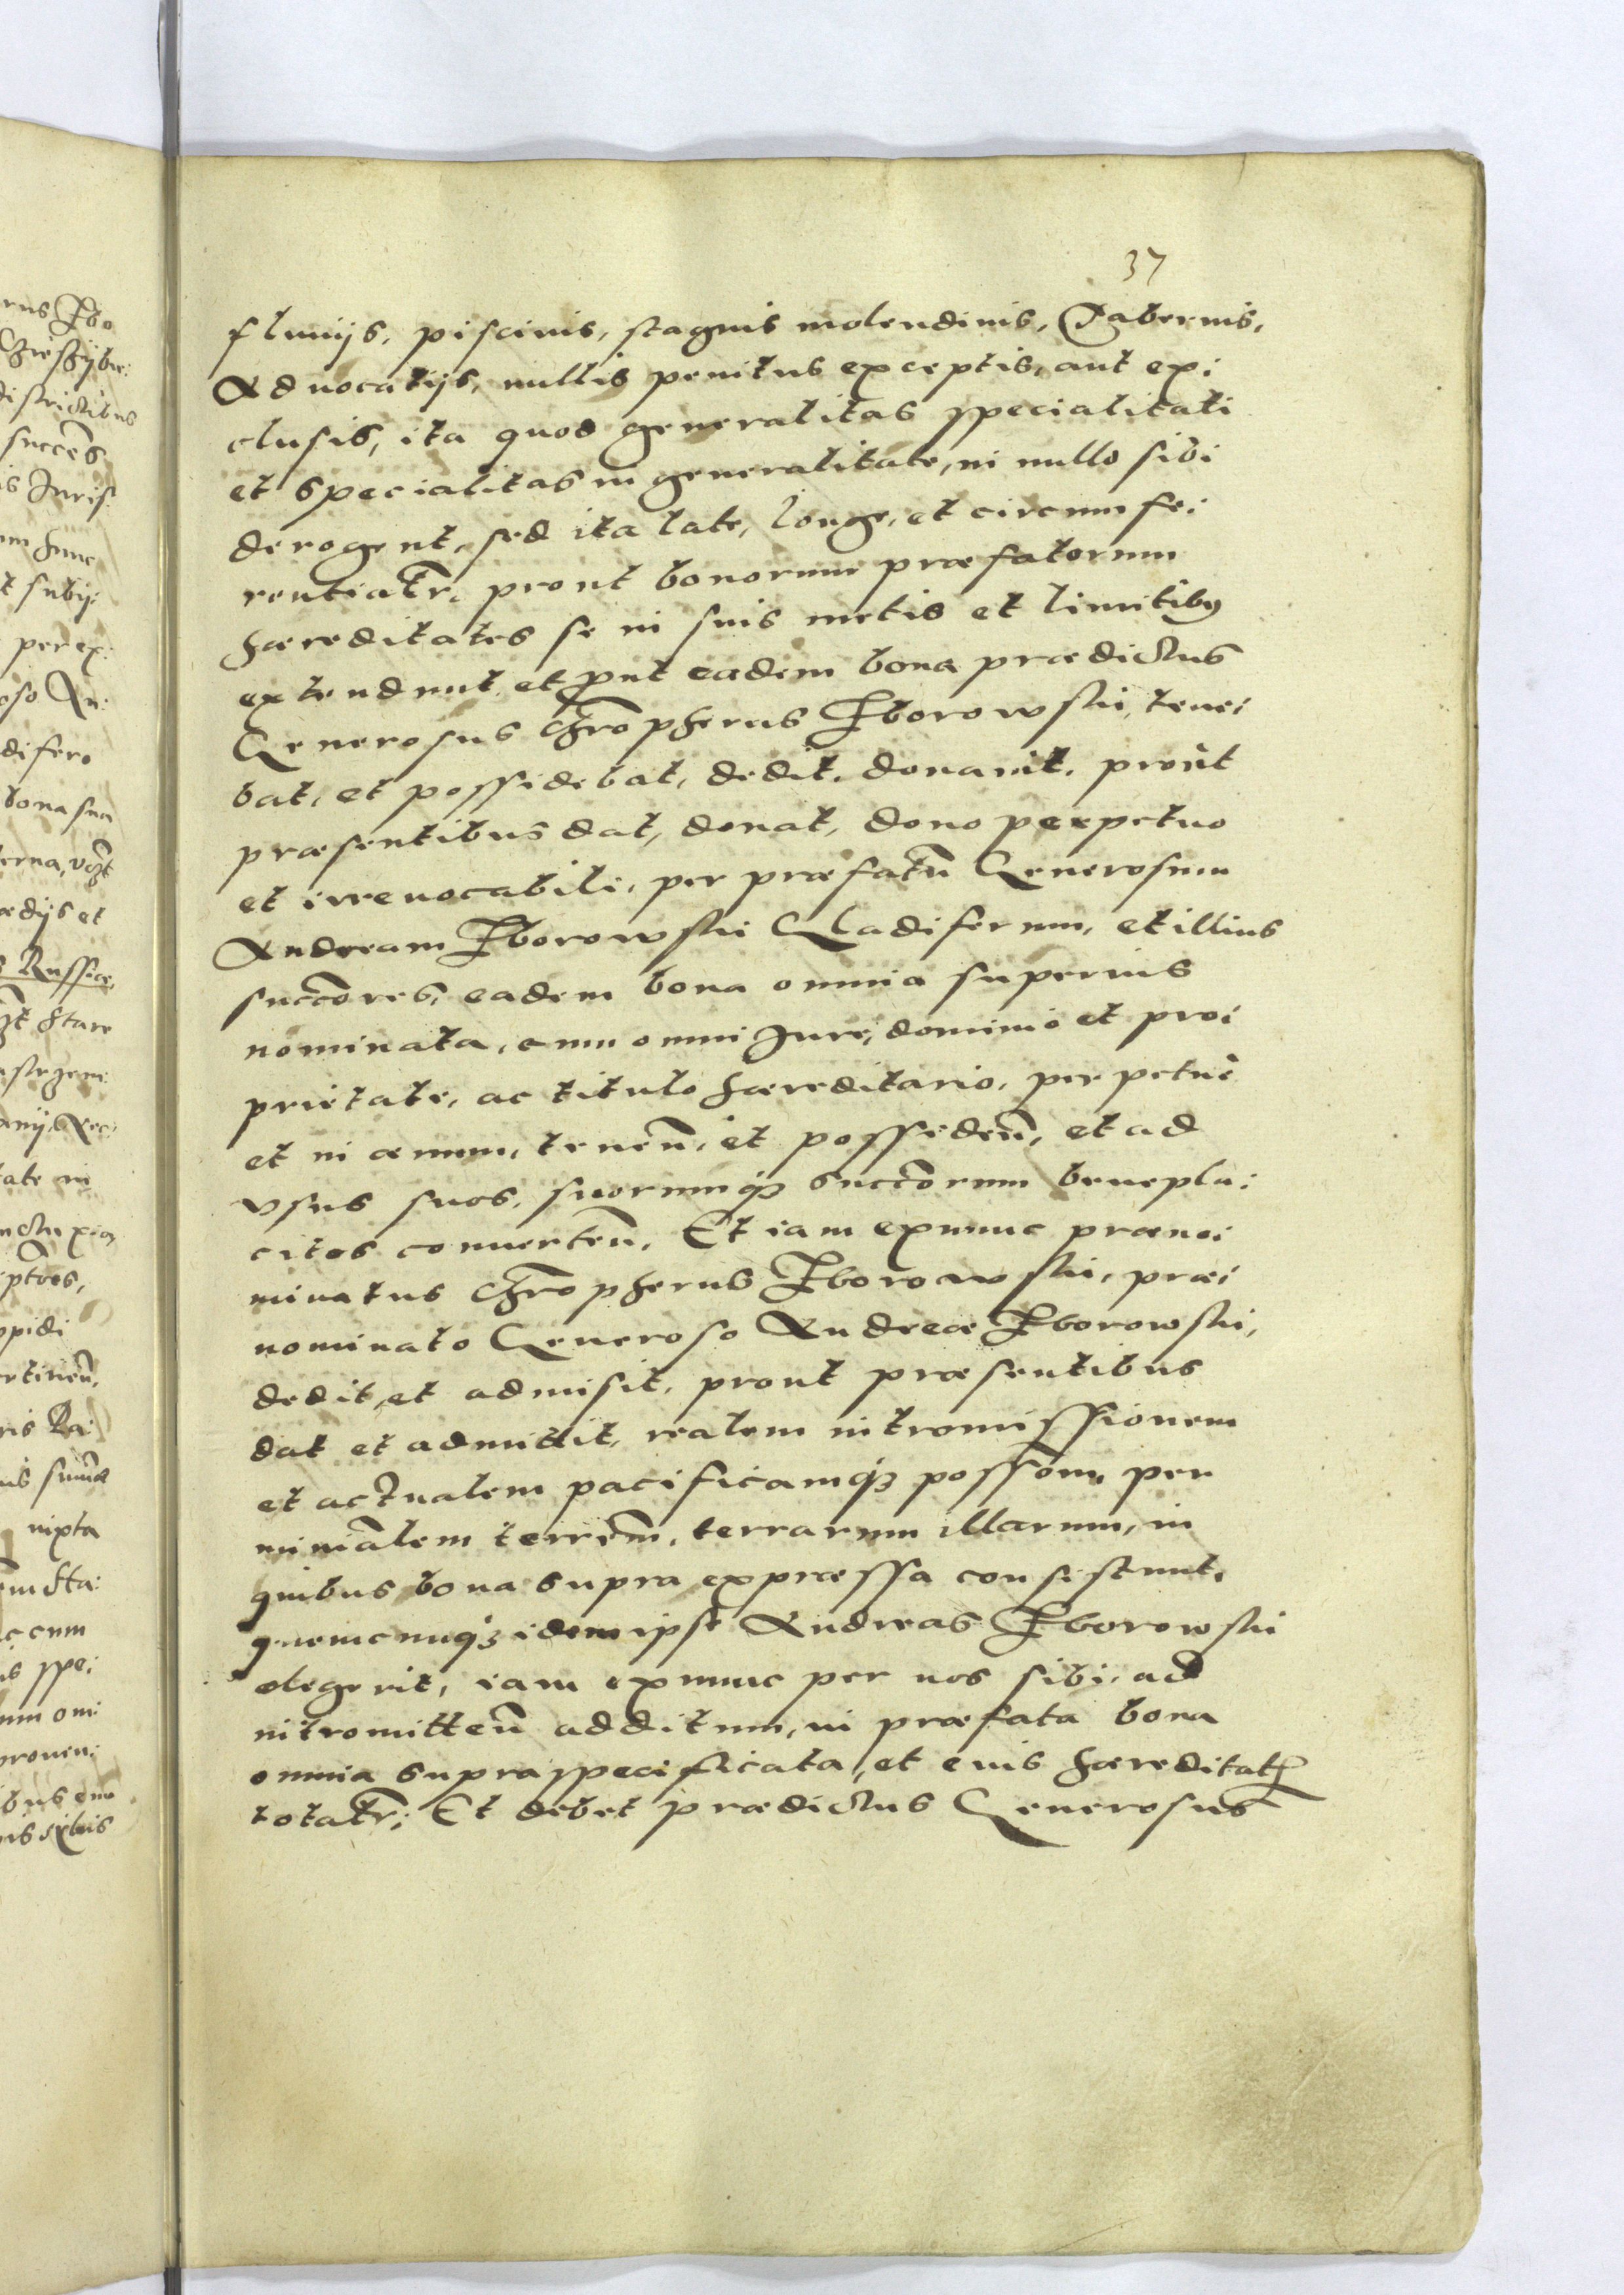 37
fluuijs, piscinis, stagnis molendinis, Tabernis,
Aduocatijs, nullis penitus exceptis, aut ex:
clusis, ita quod generalitas specialitati
et specialitas in generalitate, in nullo sibi
derogent, sed ita late, longe, et circumfe:
rentiatr̃. prout bonorum præfatorum
hæreditates se in suis metis et limitibꝰ
extendunt, et put eadem bona prædictus
Generosus Chrõpherus Zborowski, tene:
bat, et possidebat, dedit, donauit, prout
præsentibus dat, donat, dono perpetuo
et irreuocabili, per præfatũ Generosum
Andream Zborowski Gladiferum, et illius
succõres, eadem bona omnia superius
nominata, cum omni Jure, dominio et pro:
prietate, ac titulo hæreditario, perpetuè
et in æuum, teneñ, et possideñ, et ad
vsus suos, suorumqȝ succõrum benepla:
citos conuerteñ, Et iam exnunc præno:
minatus Chrõpherus Zborowski, præ:
nominato Generoso Andreæ Zborowski,
dedit, et admisit, prout præsentibus
dat et admittit, realem intromissionem
et actualem pacificamqȝ possõm, per
miniãlem terrẽm, terrarum illarum, in
quibus bona supra expræssa consistunt,
quemcunqȝ idem ipse Andreas Zborowski
elegerit, iam exnunc per nos sibi, ad
intromitteñ additum, in præfata bona
omnia supraspecificata, et eius hæreditatẽ
totatr̃: Et debet prædictus Generosus